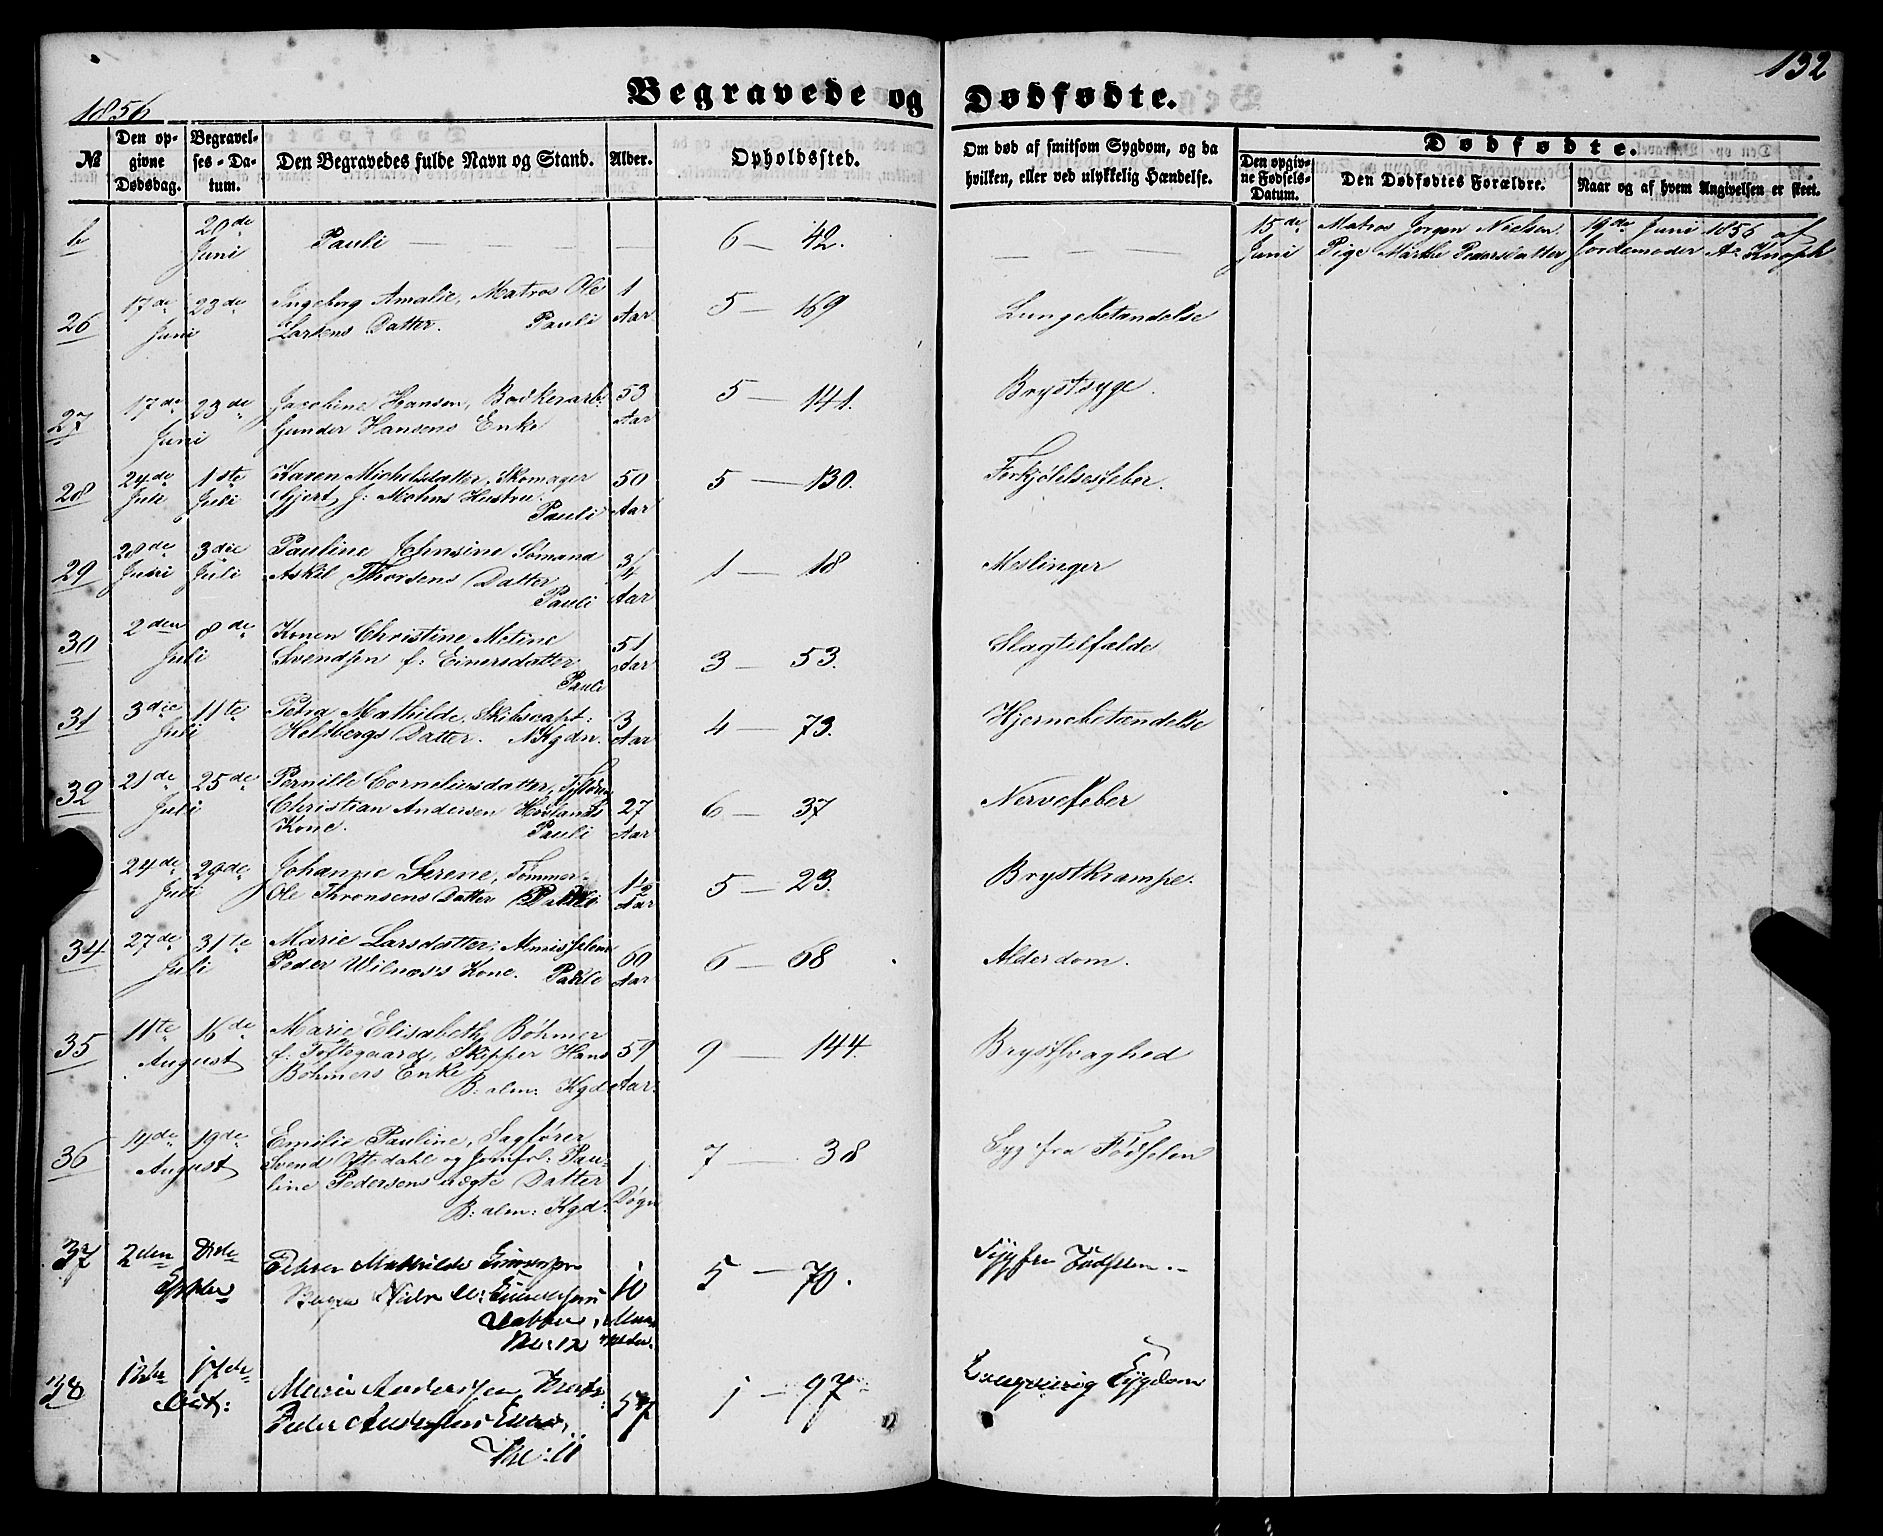 132
1856
Begravede og Dødfødte.
№ Den opgivne Dødsdag. Begravelses-Datum. Den Begravedes fulde Navn og Stand. Alder. Opholdssted. Om død af smitsom Sygdom, og da hvilken, eller ved ulykkelig Hændelse. Dødfødte.
Den opgivne Fødsels-Datum. Den Dødfødtes Forældre. Naar og af hvem Angivelsen er skeet.
b 20de Juni Pauli — 6 — 42. 15de Juni Matros Jørgen Nielsen 19de Juni 1856 af
Pige Marthe Pedersdatter Jordemoder A. Knoph
26 17de 23de Juni Ingeborg Amalie, Matros Ole 1 Aar 5 — 169 Lungebetændelse
Larsens Datter. Pauli
27 17de 23de Juni Jacobine Hansen, Bødkerarb: 53 Aar 5 — 141. Brystsyge.
Gunder Hansens Enke
28 24de Juli 1ste Juli Karen Michelsdatter, Skomager 50 Aar 5 — 130. Forkjølelsesfeber.
Gjert J: Mohns Hustru.
Pauli
29 28de Juni 3die Juli Pauline Johnsine Sømand 3/4 Aar 1 — 18 Meslinger
Askil Thorsens Datter
Pauli
30 2den 8de Juli Konen Christine Metine 51 Aar 3 — 53. Slagtilfælde
Svendsen f: Einersdatter
Pauli
31 3die 11te Juli Petra Mathilde, Skibscapt: 3 Aar 4 — 73. Hjernebetændelse
Holsbergs Datter. N. Kgdn.
32 21de 25de Juli Pernille Corneliusdatter, 27 Aar 6 — 37 Nervefeber
Christian Andersen Hoslands
Kone. Pauli
24de 29de Juli Johanne Serene, Tømmer- 1 1/2 Aar 5 — 23. Brystkrampe.
Ole Thronsens Datter Pauli
34 27de 31te Juli Marie Larsdatter, Almisselem 60 Aar 6 — 68 Alderdom.
Peder Wilnæs's Kone. Pauli
35 11te 16de August Marie Elisabeth Bøhmer 59 Aar. 9 — 144. Brystsvaghed
f: Toftegaard, Skipper Hans
Bøhmers Enke
B: alm: Kgd.
36 14de 19de August Emilie Pauline, Sagfører 1 Døgn 7 — 38 Syg fra Fødselen
Svend Dahl og Jomfr: Pau-
line Pedersens uægte Datter
B: alm: Kgd.
37 2den Petra Mathilde 10 5 — 70. Syg fra Fødselen.
Datter,
38 12te 17de Oct: Marie Andersen, 57 1 — 97 Langvarig Sygdom
Peder Andersens Enke,